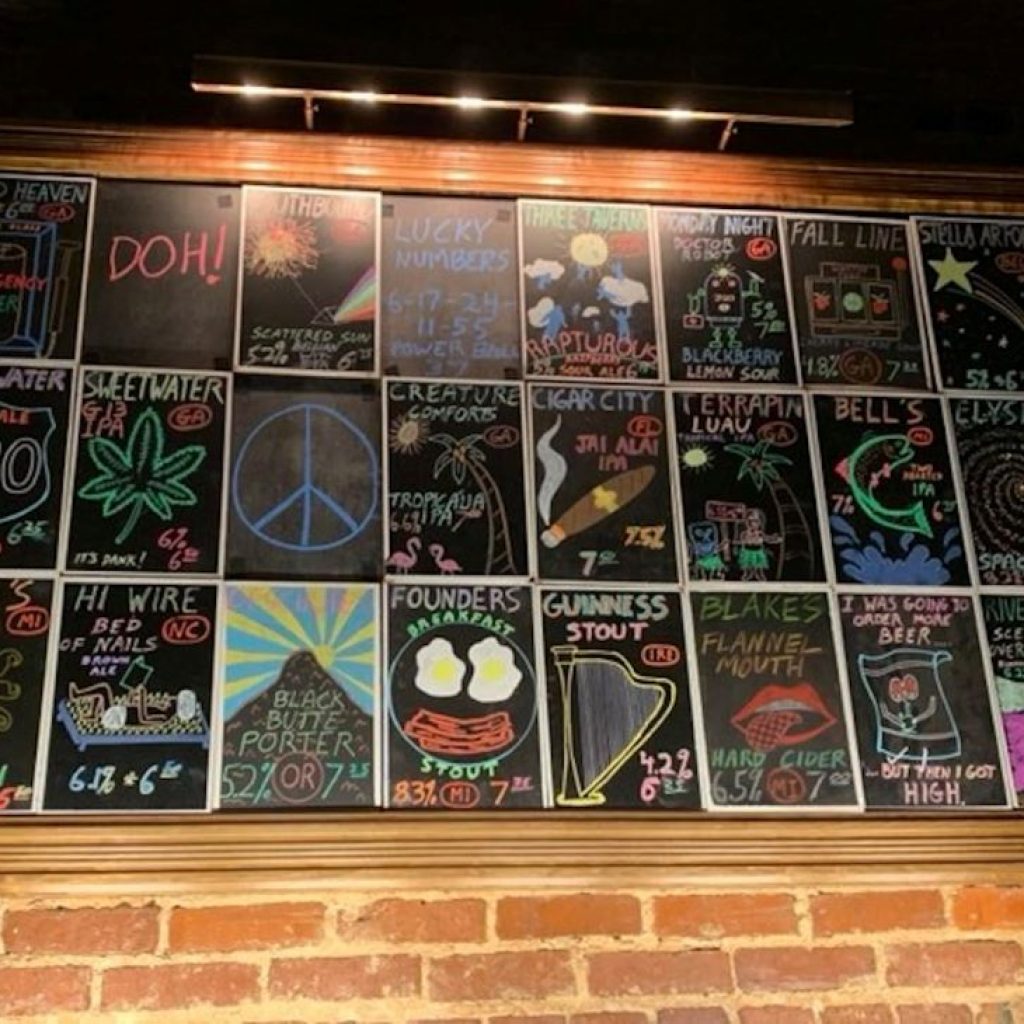 HEAVEN
GA
DOH!
SCATTERED SUN
5.2%
LUCKY
NUMBERS
6-17-24-
11-55
POWER BALL
37
THREE TAVERNS
RAPTUROUS
RASPBERRY
5% SOUR ALE
MONDAY NIGHT
DOCTOR
ROBOT
GA
5%
BLACKBERRY
LEMON SOUR
FALL LINE
GA
STELLA
WATER
ALE
SWEETWATER
G13
IPA
GA
6%
IT'S DANK!
CREATURE
COMFORTS
GA
TROPICALIA
IPA
CIGAR CITY
FL
JAI ALAI
IPA
7.5%
TERRAPIN
LUAU
TROPICAL IPA
GA
BELL'S
MI
TWO
HEARTED
IPA
7%
MI
HI WIRE
BED
OF NAILS
NC
BROWN
ALE
6.1% * 6
BLACK
BUTTE
PORTER
5.2% OR 7
FOUNDERS
BREAKFAST
STOUT
8.3% MI 7
GUINNESS
STOUT
IRE
4.2%
6
BLAKE'S
FLANNEL
MOUTH
HARD CIDER
6.5% MI 7
I WAS GOING TO
ORDER MORE
BEER...
...BUT THEN I GOT
HIGH.